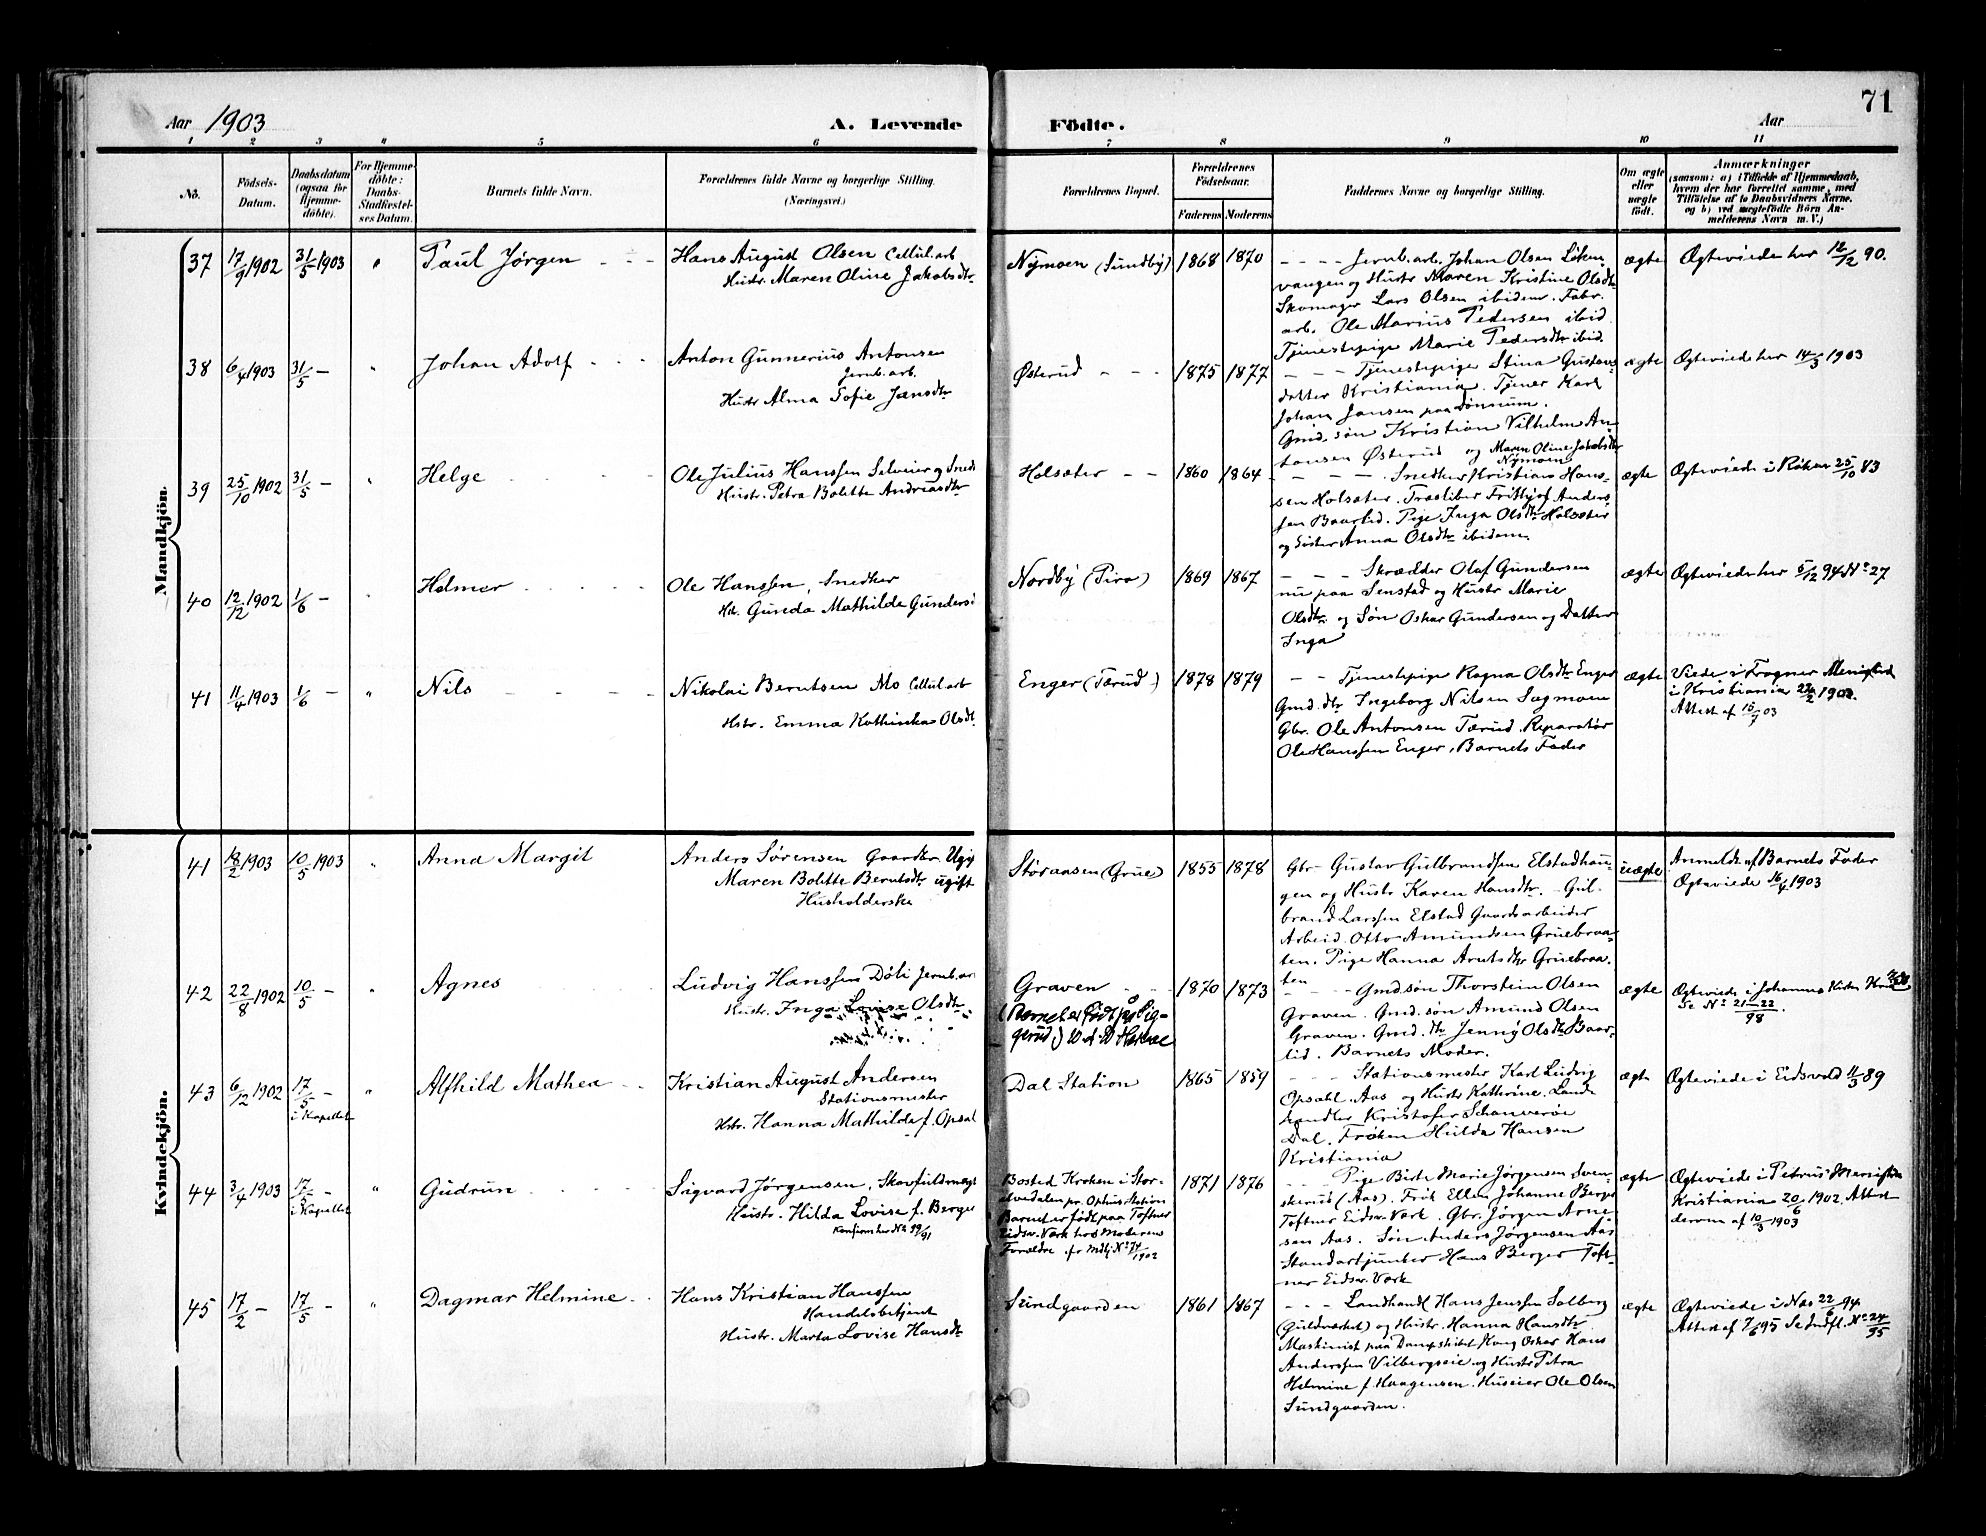 Aar 1903
A. Levende Födte.
Aar
71
1 2 3 4 5 6 7 8 9 10 11
No.
Födsels-Datum.
Daabsdatum (ogsaa for Hjemme-døbte).
For Hjemme-døbte: Daabs-Stadfæstel-ses Datum.
Barnets fulde Navn.
Forældrenes fulde Navne og borgerlige Stilling. (Næringsvei.)
Forældrenes Bopæl.
Forældrenes Födselsaar.
Faderens Moderens
Faddernes Navne og borgerlige Stilling.
Om ægte eller uægte født.
Anmærkninger
(saasom: a) i Tilfælde af Hjemmedaab,
hvem der har forrettet samme, med
Tilføielse af to Daabsvidners Navne.
og b) ved uægtefödte Börn An-
melderens Navn m. V.)
Mandkjön.
37 17/9 1902 31/5 1903 " Paul Jørgen
Hans August Olsen Cellul.arb
Hustr. Maren Oline Jakobsdtr
Nymoen (Sundby) 1868 1870
Jernb.arb. Johan Olsen Løken
vangen og Hustr Maren Kristine Olsdtr
Skomager Lars Olsen ibidem. Fabr.
arb. Ole Marius Pedersen ibid
Tjenestepige Marie Pedersdtr ibid.
ægte Ægteviede her 12/12 90.
38 6/4 1903 31/5 " Johan Adolf
Anton Gunnerius Antonsen
Jernb.arb.
Hustr Alma Sofie Jansdtr
Østerud 1875 1877
Tjenestepige Stina Gustavs
datter Kristiania. Tjener Karl
Johan Jansen paa Dønnum.
Gmd.søn Kristian Vilhelm An
tonsen Østerud og Maren Oline Jakobsdtr
Nymoen
ægte Ægteviede her 14/3 1903
39 25/10 1902 31/5 " Helge
Ole Julius Hanssen Selveier og Sned
Hustr. Petra Bolette Andreasdtr
Holsæter 1860 1864
Snedker Kristian Hans-
sen Holsæter. Træsliber Fritjof Anders
sen Baarlid. Pige Inga Olsdtr Holsæter
og Søster Anna Olsdtr ibidem.
ægte Ægteviede i Røken 25/10 83
40 12/12 1902 1/6 " Helmer
Ole Hanssen, Snedker
Hd. Gunda Mathilde Gunders
Nordby (Piro) 1869 1867
Skrædder Olaf Gundersen
nu paa Senstad og Hustr Marie
Olsdtr og Søn Oskar Gundersen og Datter
Inga
ægte Ægteviede her 5/12 94 No 27
41 11/4 1903 1/6 " Nils
Nikolai Berntsen Mo Cellul.arb
Hstr. Emma Kathinka Olsdt
Enger (Tærud) 1878 1879
Tjenestepige Ragna Olsdtr Enger
Gmd.dtr Ingeborg Nilsen Sagmoen
Gbr. Ole Antonsen Tærud. Reparatør
Ole Hanssen Enger, Barnets Fader
ægte Viede i Frogner Menighed
i Kristiania 22/2 1903.
Attest af 15/7 03
Kvindekjön.
41 18/2 1903 10/5 1903 " Anna Margit
Anders Sørensen Gaardbr. Ugift
Maren Bolette Berntsdtr ugift
Husholderske
Støraasen (Grue) 1855 1878
Gbr Gustav Gulbrandsen Elstadhau-
gen og Hustr Karen Hansdtr. Gul-
brand Larssen Elstad Gaardsarbeider
Arbeid. Otto Amundsen Gruebraa-
ten. Pige Hanna Arntsdtr Gruebraa.
ten
uægte Anmeldt af Barnets Fader
Ægteviede 16/4 1903
42 22/8 1902 10/5 " Agnes
Ludvig Hanssen Døli Jernb.ar
Hustr. Inga Lovise Olsdtr
Graven
(Barnet er født på Sig-
gerud)
1870 1873
Gmd.søn Thorstein Olsen
Graven. Gmd.søn Amund Olsen
Graven. Gmd.dtr Jenny Olsdtr Baar-
lid. Barnets Moder.
ægte Ægteviede i Johannes Kirke
Se No 21-22/98.
43 6/12 1902 17/5 i Kapellet " Alfhild Mathea
Kristian August Andersen
Stationsmester
Hstr. Hanna Mathilde f. Opsal
Dal Station 1865 1859
Stationsmester Karl Ludvig
Opsahl Aas og Hustr Kathrine. Land-
handler Kristofer Schanverøi
Dal. Frøken Hulda Hansen
Kristiania
ægte Ægteviede i Eidsvold 11/3 89
44 3/4 1903 17/5 i Kapellet " Gudrun
Sigvard Jørgensen, Skovfuldmægt
Hustr. Hilda Lovise f. Berger
Konfirm her No 39/91
Bosted Kroken i Stor-
elvedalen pr. Ophus Station
Barnet er født paa Tofner
Eidsv. Værk hos Moderens
Forældre. cfr Mdlj No 74/1902
1871 1876
Pige Birte Marie Jørgensen Sven-
skerud (Aas). Frk Ellen Johanne Berger
Toftner Eidsv. Værk. Gbr. Jørgen Arne
sen Aas. Søn Anders Jørgensen Aas
Standartjunker Hans Berger Toft-
ner Eidsv. Værk
ægte Ægteviede i Petrus Menighed
Kristiania 20/6 1902. Attest
derom af 10/3 1903
45 17/2 17/5 " Dagmar Helmine
Hans Kristian Hanssen
Handelsbetjent
Hustr. Marta Lovise Hansdtr
Sundgaarden 1861 1867
Landhandl Hans Jenssen Solberg
(Guldværket) og Hustr. Hanna Hansdtr.
Maskinist paa Dampskibet Kong Oskar Hans
Anderssen Vilbergseie og Hustr Petra
Helmine f. Haagensen. Huseier Ole Olsen
Sundgaarden.
ægte Ægteviede i Næs 22/6 94
Attest af 7/6 95 Se Indfl. No 24/95